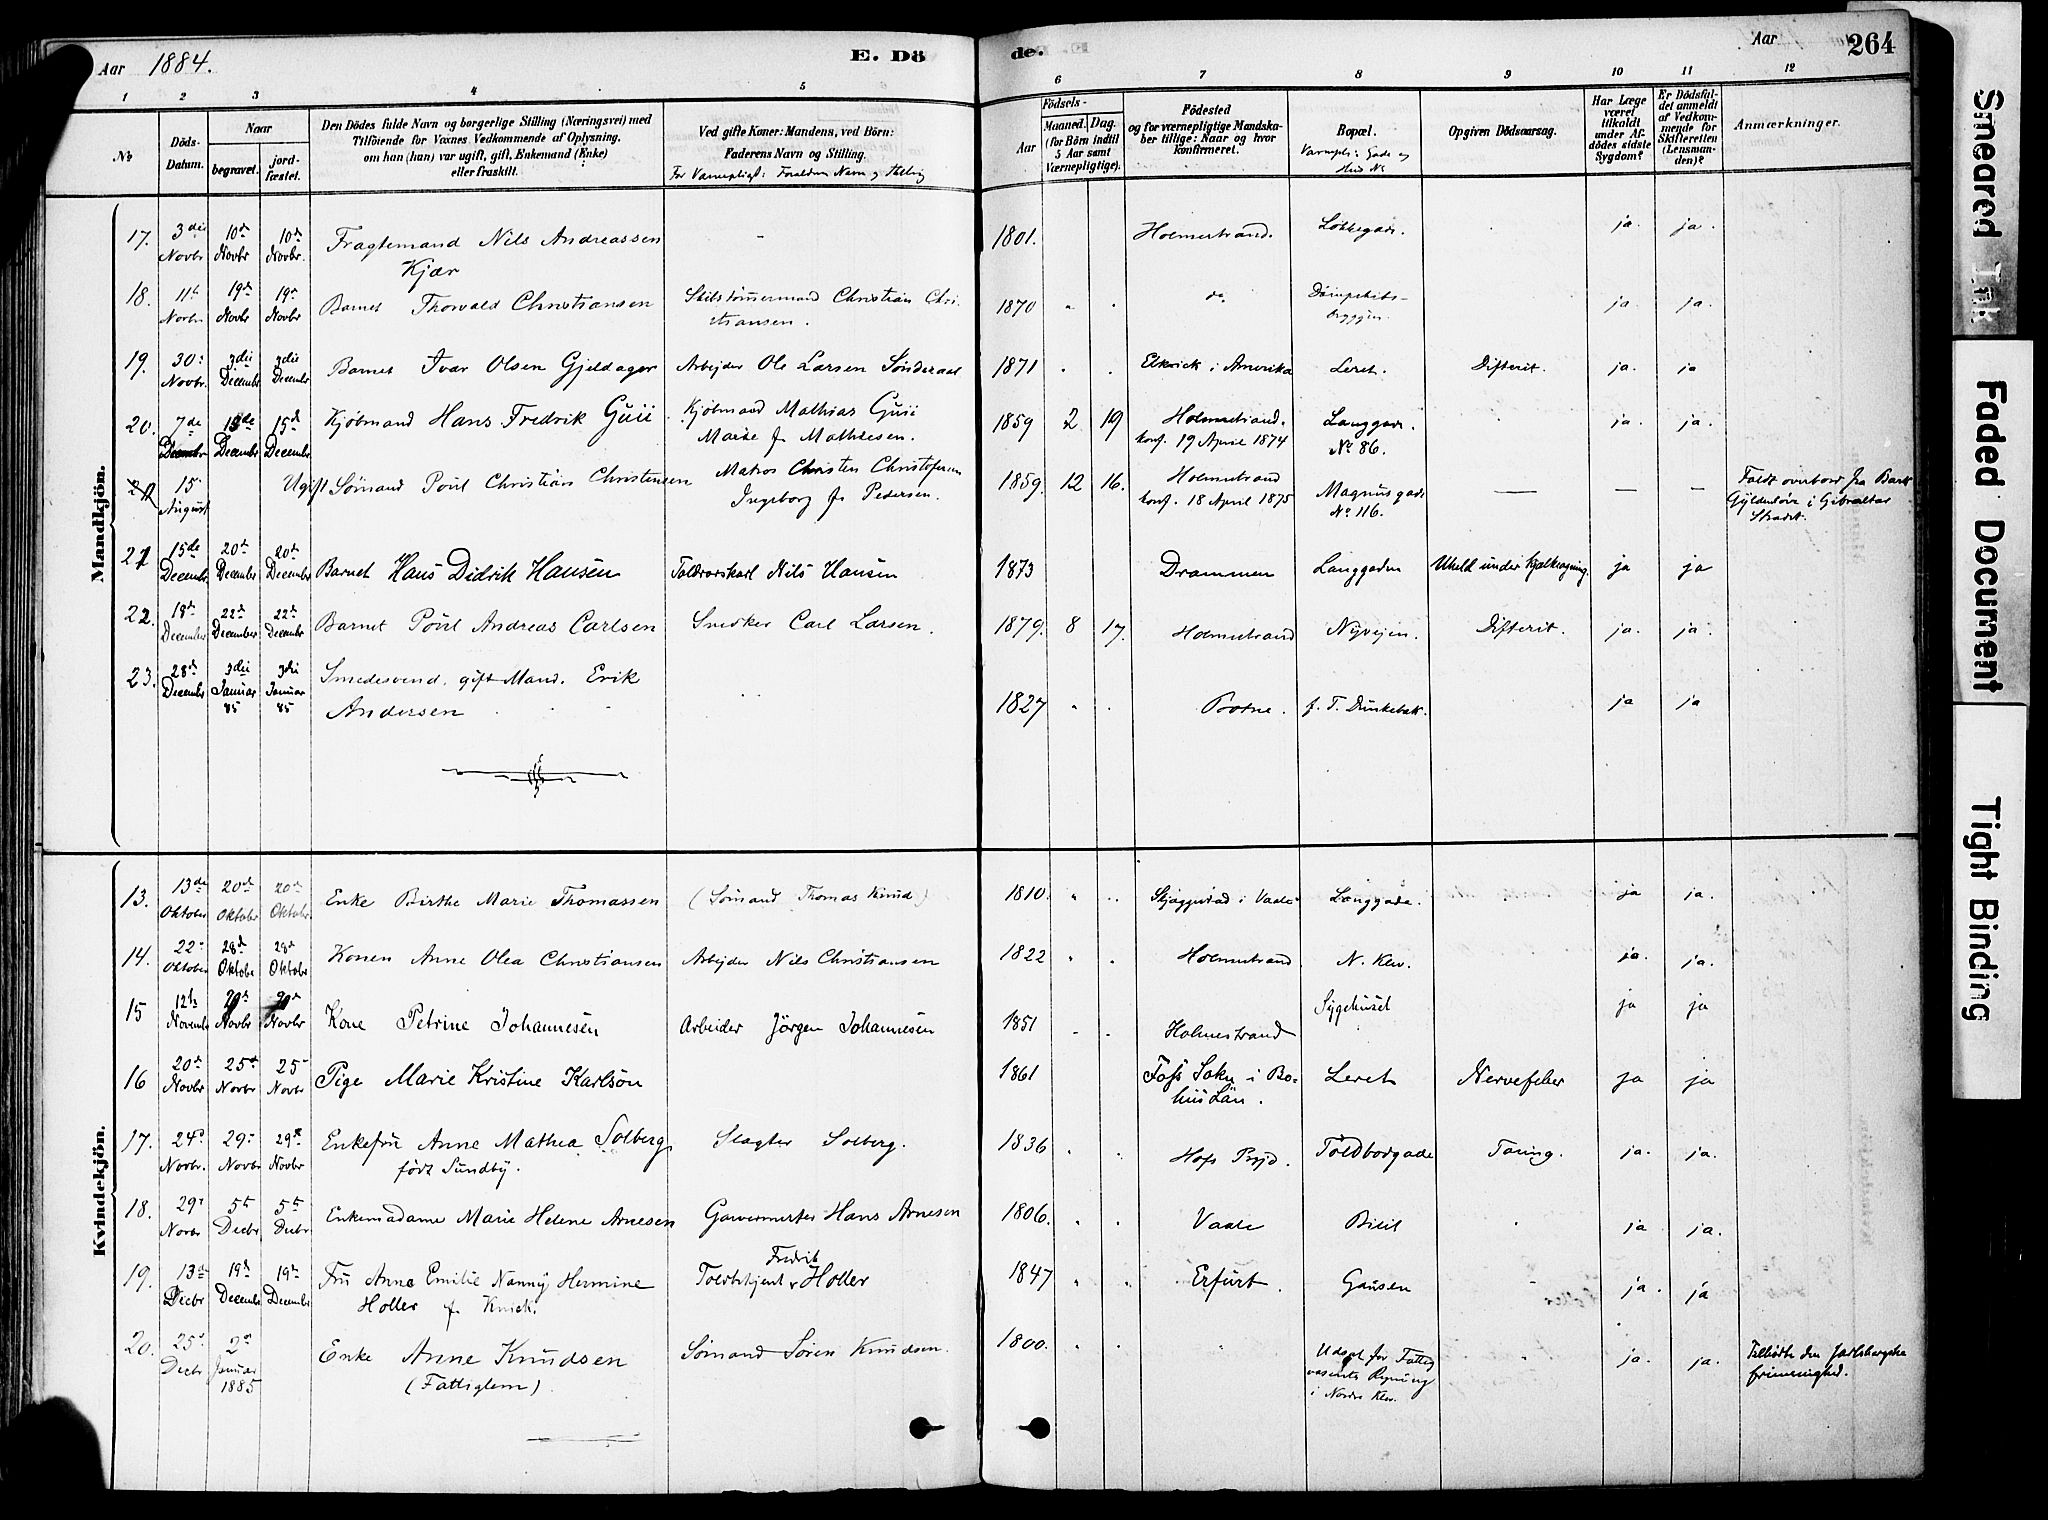 Aar 1884. E. Dö de. Aar 264
1 2 3 4 5 6 7 8 9 10 11 12
No Döds-Datum. Naar begravet. jordfæstet. Den Dödes fulde Navn og borgerlige Stilling (Næringsvei) med Tilföiende for Voxnes Vedkommende af Oplysning, om han (hun) var ugift, gift, Enkemand (Enke) eller fraskilt. Ved gifte Koner: Mandens, ved Börn: Faderens Navn og Stilling. For Værnepligt: Forældres Navn og Stilling
Födsels- Aar Maaned. Dag. (for Börn indtil 5 Aar samt Værnepligtige). Födested og for værnepligtige Mandskaber tillige: Naar og hvor konfirmeret. Bopæl. Værnepl: Gade og Hus No Opgiven Dödsaarsag. Har Læge været tilkaldt under Afdödes sidste Sygdom? Er Dödsfaldet anmeldt af Vedkommende for Skifteretten (Lensmanden)? Anmærkninger.
Mandkjön.
17. 3die Novbr 10de Novbr 10de Novbr. Fragtemand Nils Andreassen Kjær - 1801. Holmestrand. Løkkegade. ja. ja.
18. 11te Novbr 19de Novbr 19de Novbr Barnet Thorvald Christiansen Skibstømmermand Christian Christiansen. 1870 do Dampskibsbryggen. ja. ja.
19. 30. Novbr. 3die December 3die December Barnet Ivar Olsen Gjeldager Arbejder Ole Larsen Sønderaal 1871 i Amerika Leret. Difterit. ja. ja
20. 7de December 15de December 15de December Kjøbmand Hans Fredrik Guii Kjøbmand Mathias Guii Marie f. Mathiesen. 1859 2 19 Holmestrand. konf. 19 April 1874 Langgade. No 86. ja. ja.
21 15 August Ugift Sømand Poul Christian Christensen Matros Christen Christofersen Ingeborg f. Pedersen. 1859. 12 16. Holmestrand konf. 18 April 1875 Magnusgade No 116. — — — Faldt overbord fra Bark Gyldenløve i Gibraltar Strædet.
21 15de December 20de December 20de December Barnet Hans Didrik Hansen Toldroerskarl Nils Hansen 1873 Drammen Langgaden Uheld under Kjælkeagning. ja ja
22. 18de December 22de December 22de December Barnet Poul Andreas Carlsen Snedker Carl Larsen. 1879. 8 17. Holmestrand Nyvejen. Difterit. ja. ja.
23. 28de December 3die Januar 85 3die Januar 85 Smedesvend, gift Mand. Erik Andersen 1827 Botne. ja ja
Kvindekjön.
13. 13de Oktober 20de Oktober 20de Oktober Enke Birthe Marie Thomassen (Sømand Thomas Knud) 1810. i Vaale Langgade. ja ja.
14. 22. Oktober 28de Oktober 28de Oktober Konen Anne Olea Christiansen Arbejder Nils Christiansen 1822 Holmestrand N. Klev. ja. ja.
15 12te November 20de Novbr 20de Novbr Kone Petrine Johannesen Arbeider Jörgen Johannesen 1851 Holmestrand Sygehuset ja ja
16 20de Novbr 25de Novbr 25 Novbr Pige Marie Kristine Karlson 1861 Foss Sokn i Bohus Län. Leret Nervefeber ja ja
17. 24de Novbr. 29. Novbr 29de Novbr Enkefru Anne Mathea Solberg født Sundby. Slagter Solberg. 1836 Hofs Prgjd. Toldbodgade Tæring. ja. ja.
18. 29. Novbr 5te Decbr 5te Decbr Enkemadame Marie Helene Arnesen Garvermester Hans Arnesen 1806. Vaale Bilit ja ja.
19. 13de Decbr 19de December 19de December Fru Anne Emilie Nanny Hermine Holler f. Knick. Toldbetjent Fredrik Holler 1847 Erfurt. Gausen ja. ja
20. 25. Decbr 2den Januar 1885 Enke Anne Knudsen (Fattiglem). Sømand Søren Knudsen. 1800. Udsat for Fattigvæsenets Regning i Nordre Klev. ja. ja. Tilhørte den Jarlsbergske frimenighed.
Smeared Ink
Faded Document
Tight Binding